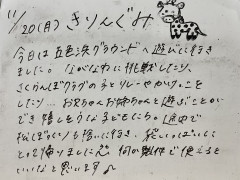 11/20(月) きりんぐみ
今日は五色浜グラウンドへ遊びに行き
ました。ながなわに挑戦したり、
さくらんぼクラブの子とリレーやかけっこを
したり… お兄ちゃんお姉ちゃんと遊ぶことが
でき嬉しそうな子どもたち。途中で
松ぼっくりを拾いに行き、袋いっぱいに
とって帰りました。何か製作で使えると
いいなと思います♪